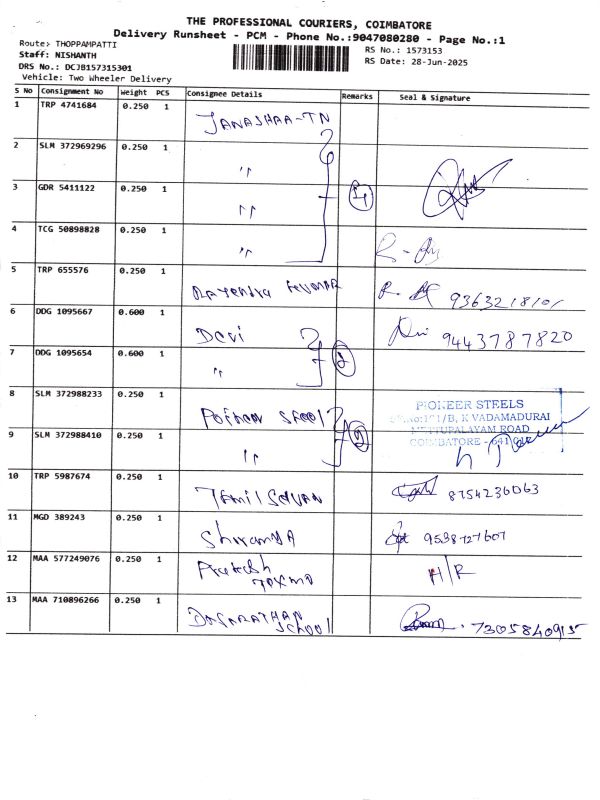 THE PROFESSIONAL COURIERS, COIMBATORE
Delivery Runsheet - PCM - Phone No.:9047080280 - Page No.:1
Route: THOPPAMPATTI
Staff: NISHANTH
RS No.: 1573153
DRS No.: DCJB157315301
RS Date: 28-Jun-2025
Vehicle: Two Wheeler Delivery
S No Consignment No Weight PCS Consignee Details Remarks Seal & Signature
1 TRP 4741684 0.250 1 JANASHAA-TN
2 SLM 372969296 0.250 1 "
3 GDR 5411122 0.250 1 "
4 TCG 50898828 0.250 1 "
5 TRP 655576 0.250 1
6 DDG 1095667 0.600 1 Devi 9443787820
7 DDG 1095654 0.600 1 "
8 SLM 372988233 0.250 1
PIONEER STEELS
K VADAMADURAI
METTUPALAYAM ROAD
COIMBATORE - 641
9 SLM 372988410 0.250 1 "
10 TRP 5987674 0.250 1 TAMILSELVAN 8754236063
11 MGD 389243 0.250 1
12 MAA 577249076 0.250 1 H/R
13 MAA 710896266 0.250 1 DASARATHAN 7305840915
SCHOOL